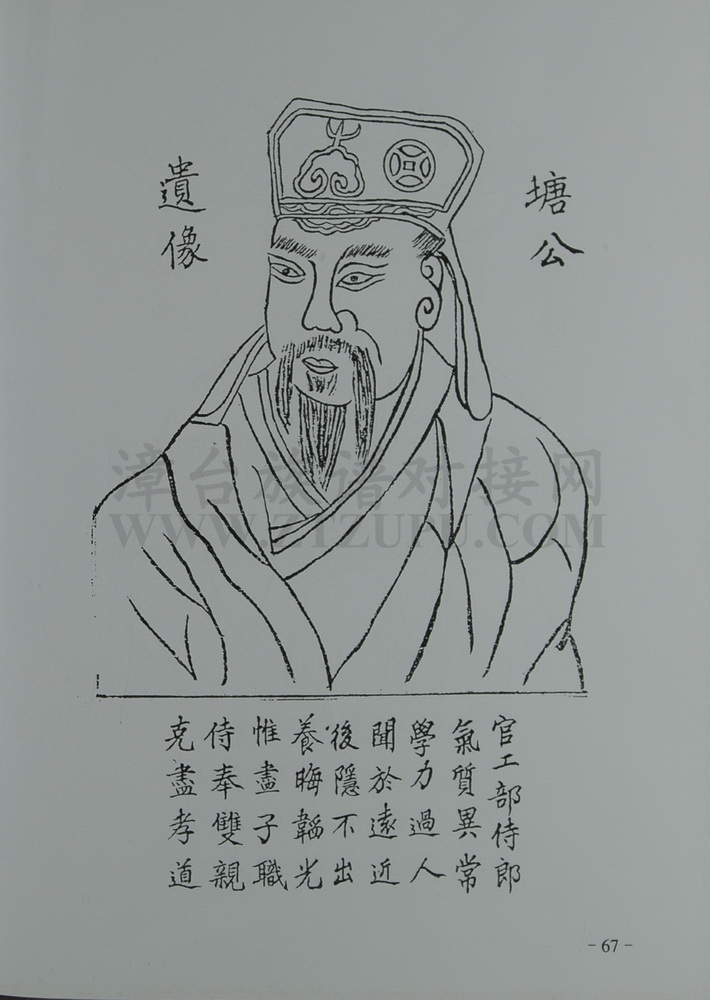 塘公
遺像
官工部侍郎
氣質異常
學力過人
聞於遠近
後隱不出
養晦韜光
惟盡子職
侍奉雙親
克盡孝道
漳台族谱对接网
WWW.ZTZUPU.COM
- 67 -